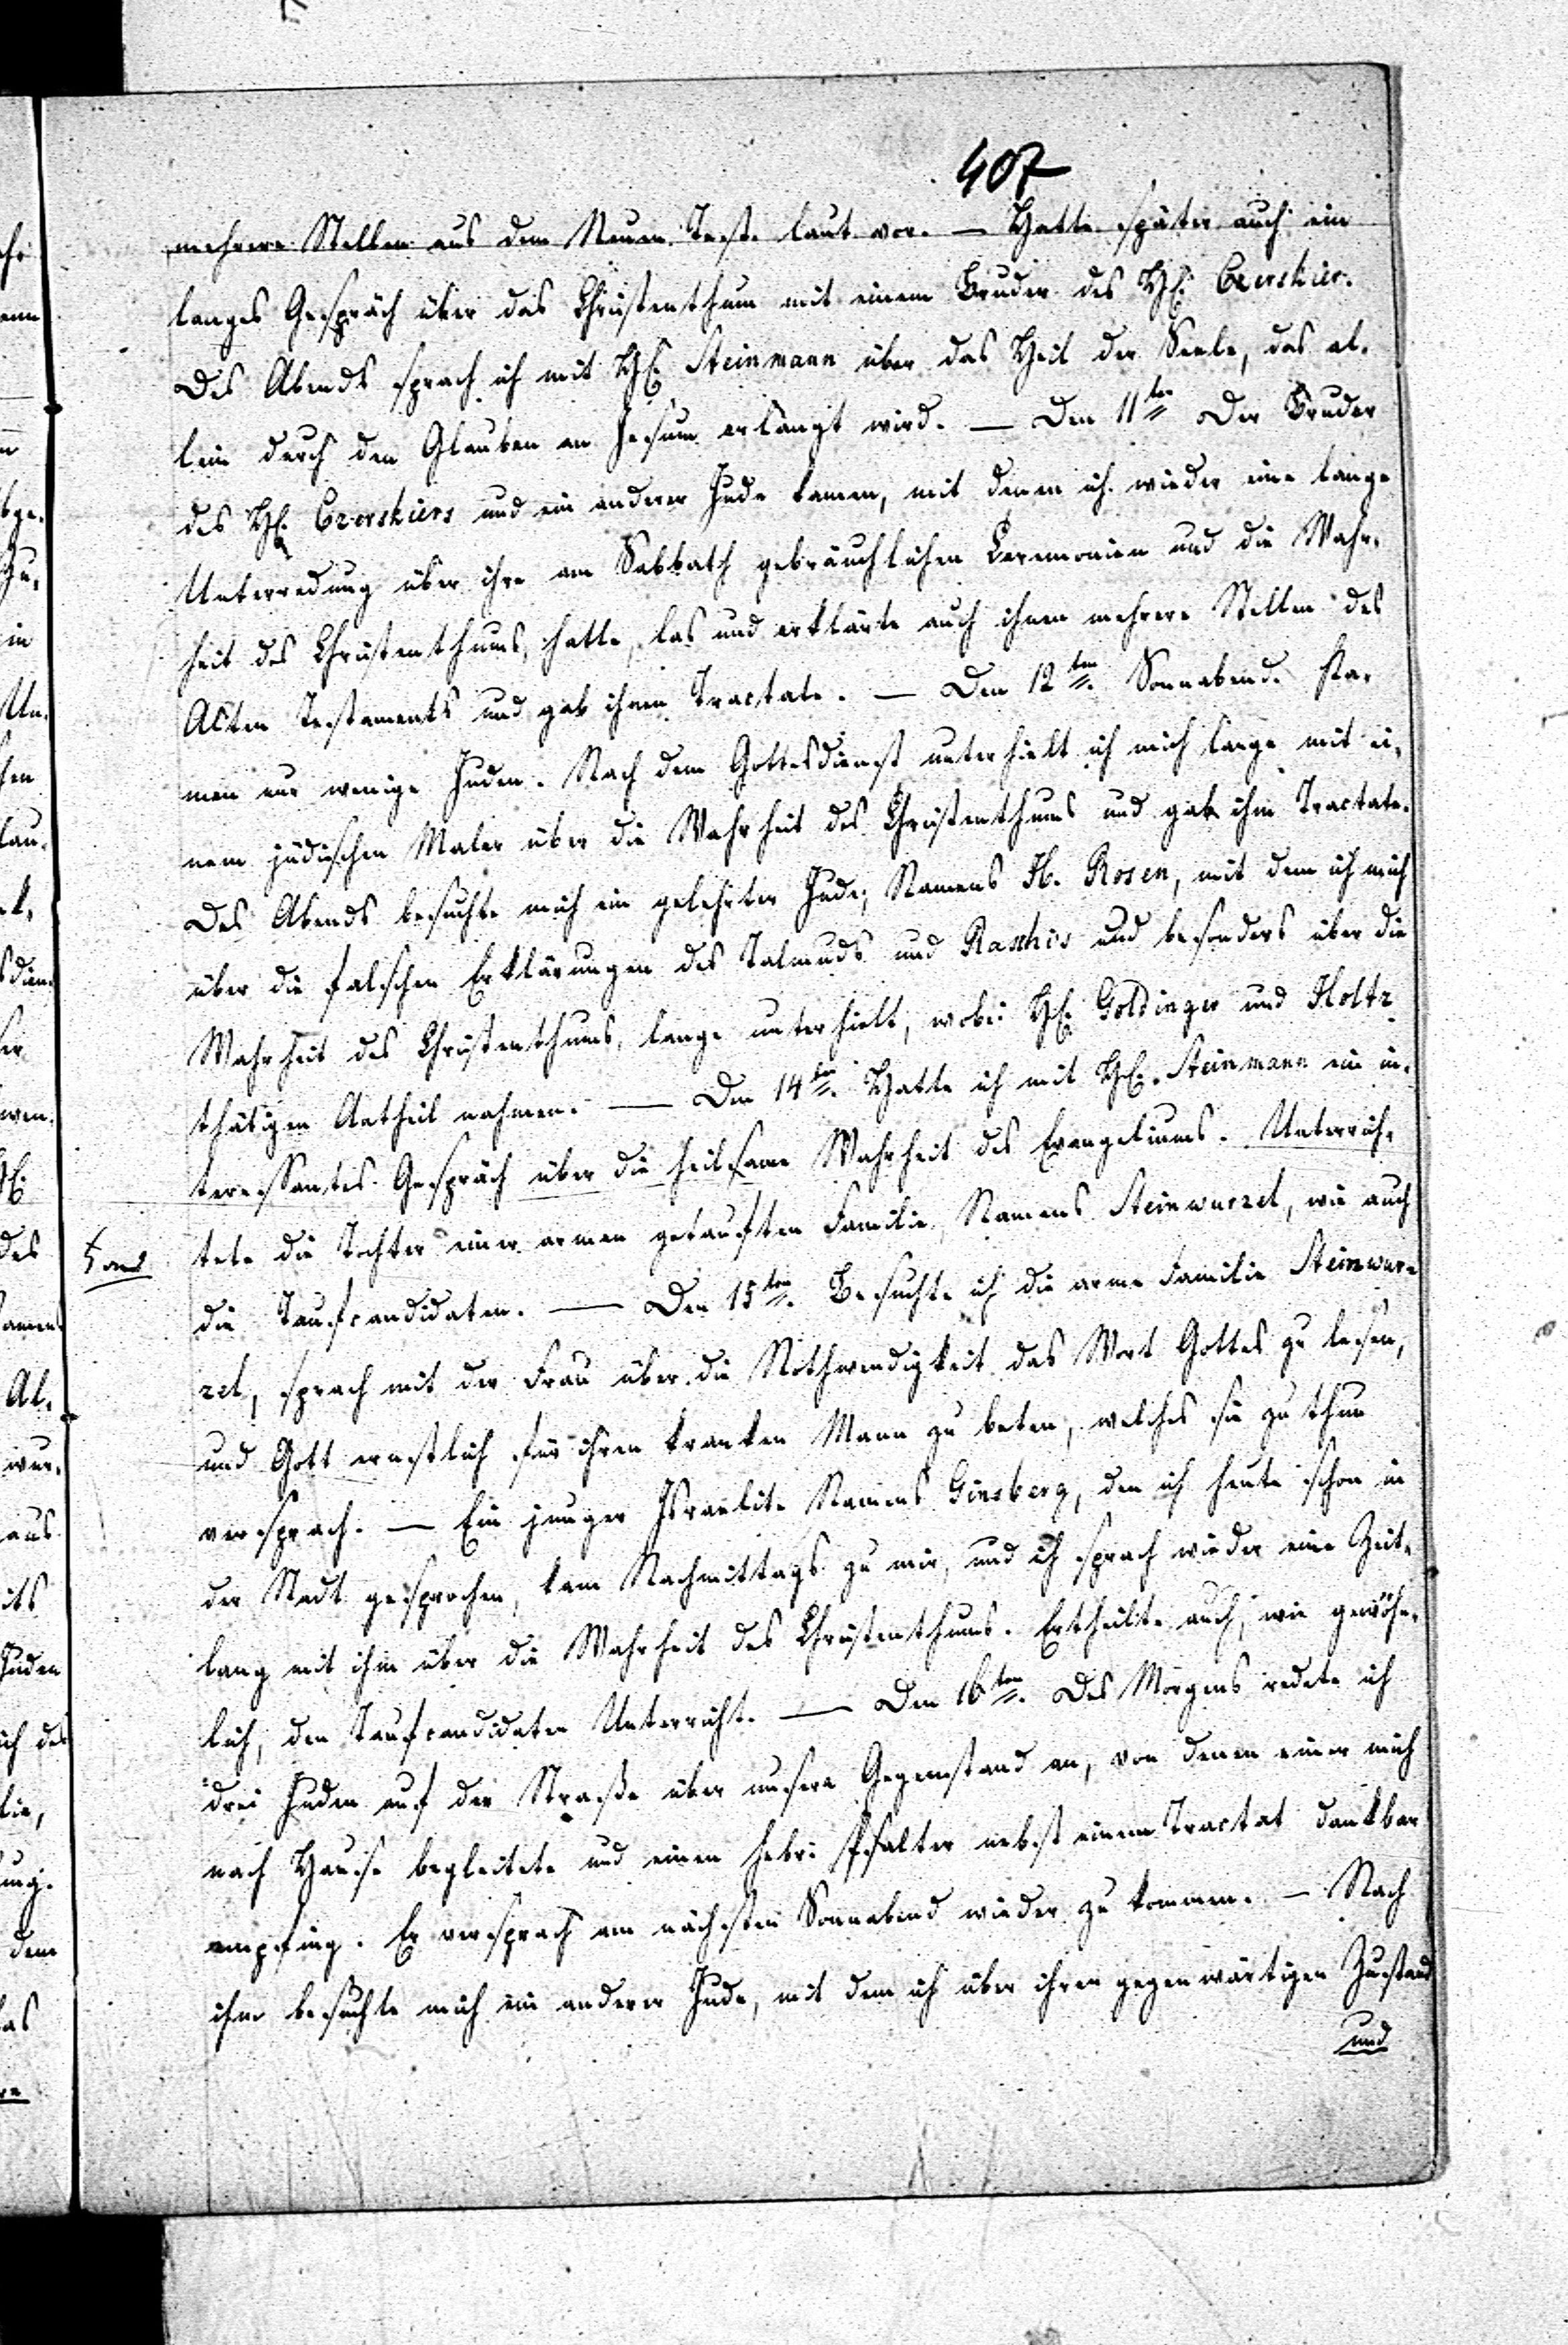 407
mehrere Stellen aus dem Neuen Test. laut vor. — Hatte später auch ein
langes Gespräch über das Christenthum mit einem Bruder des H. Czerskier.
Des Abends sprach ich mit H. Steinmann über das Heil der Seele, das al-
lein durch den Glauben an Jesum erlangt wird. — Den 11ten Der Bruder
des H. Czerskiers und ein anderer Jude kamen, mit denen ich wieder eine lange
Unterredung über ihre am Sabbath gebräuchlichen Ceremonien und die Wahr-
heit des Christenthums, hatte, las und erklärte auch ihnen mehrere Stellen des
Alten Testaments und gab ihnen Tractate. — Den 12ten Sonnabend. Ka-
men nur wenige Juden. Nach dem Gottesdienst unterhielt ich mich lange mit ei-
nem jüdischen Maler über die Wahrheit des Christenthums und gab ihm Tractate.
Des Abends besuchte mich ein gelehrter Jude, Namens H. Rosen, mit dem ich mich
über die falschen Erklärungen des Talmuds und Raschis und besonders über die
Wahrheit des Christenthums, lange unterhielt, wobei H. Goldinger und Holtz
thätigen Antheil nahmen. — Den 14ten Hatte ich mit H. Steinmann ein in-
teressantes Gespräch über die heilsame Wahrheit des Evangeliums. Unterrich-
tete die Tochter einer armen getauften Familie, Namens Steinwurzel, wie auch
die Taufcandidaten. — Den 15ten Besuchte ich die arme Familie Steinwur-
zel, sprach mit der Frau über die Nothwendigkeit das Wort Gottes zu lesen,
und Gott ernstlich für ihren kranken Mann zu beten, welches sie zu thun
versprach. — Ein junger Israelite Namens Ginsberg, den ich heute schon in
der Stadt gesprochen, kam Nachmittags zu mir, und ich sprach wieder eine Zeit-
lang mit ihm über die Wahrheit des Christenthums. Ertheilte auch, wie gewöhn-
lich, den Taufcandidaten Unterricht. — Den 16ten Des Morgens redete ich
drei Juden auf der Straße über unsern Gegenstand an, von denen einer mich
nach Hause begleitete und einen hebr. Psalter nebst einem Tractat dankbar
empfing. Er versprach am nächsten Sonnabend wieder zu kommen. — Nach
ihm besuchte mich ein anderer Jude, mit dem ich über ihren gegenwärtigen Zustand
und